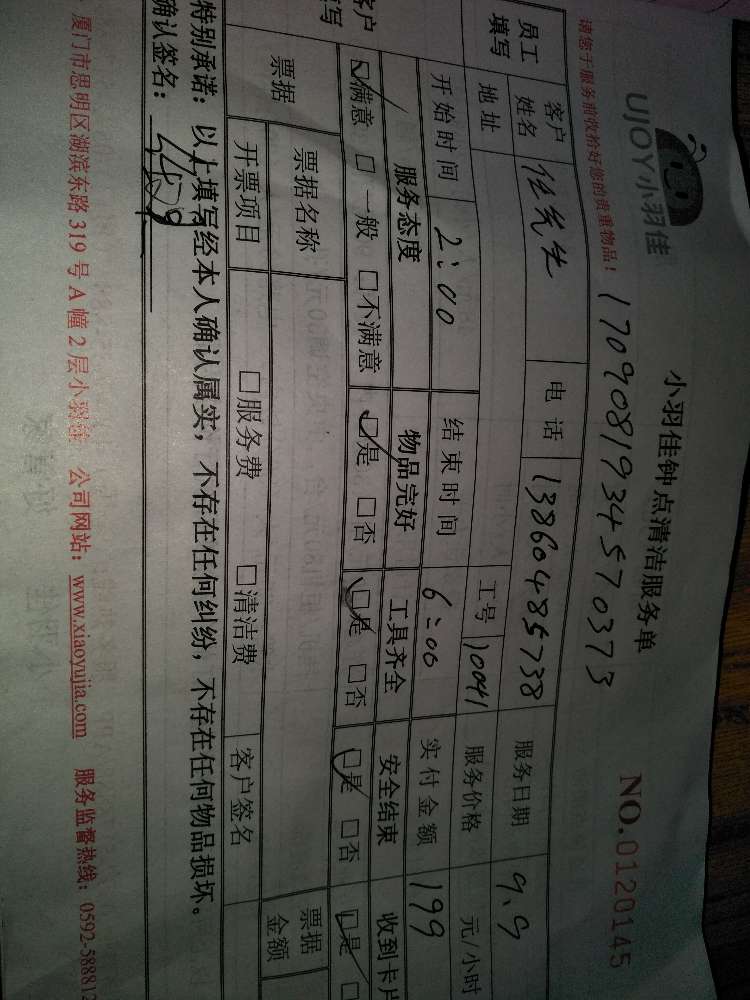 UJOY小羽佳
小羽佳钟点清洁服务单
NO.0120145
请您于服务前收拾好您的贵重物品！
17090819345 70373
员工
填写
客户
姓名
任先生
电话
13860485738
服务日期
9.9
地址
工号
10041
服务价格
元/小时
开始时间
2:00
结束时间
6:00
实付金额
199
客户
填写
服务态度
物品完好
工具齐全
安全结束
收到卡片
满意 □一般 □不满意
是 □否
是 □否
是 □否
是
票据
票据名称
票据
金额
开票项目
□服务费 □清洁费
客户签名
特别承诺：以上填写经本人确认属实，不存在任何纠纷，不存在任何物品损坏。
确认签名：
厦门市思明区湖滨东路319号A幢2层小羽佳 公司网站：www.xiaoyujia.com 服务监督热线：0592-58881